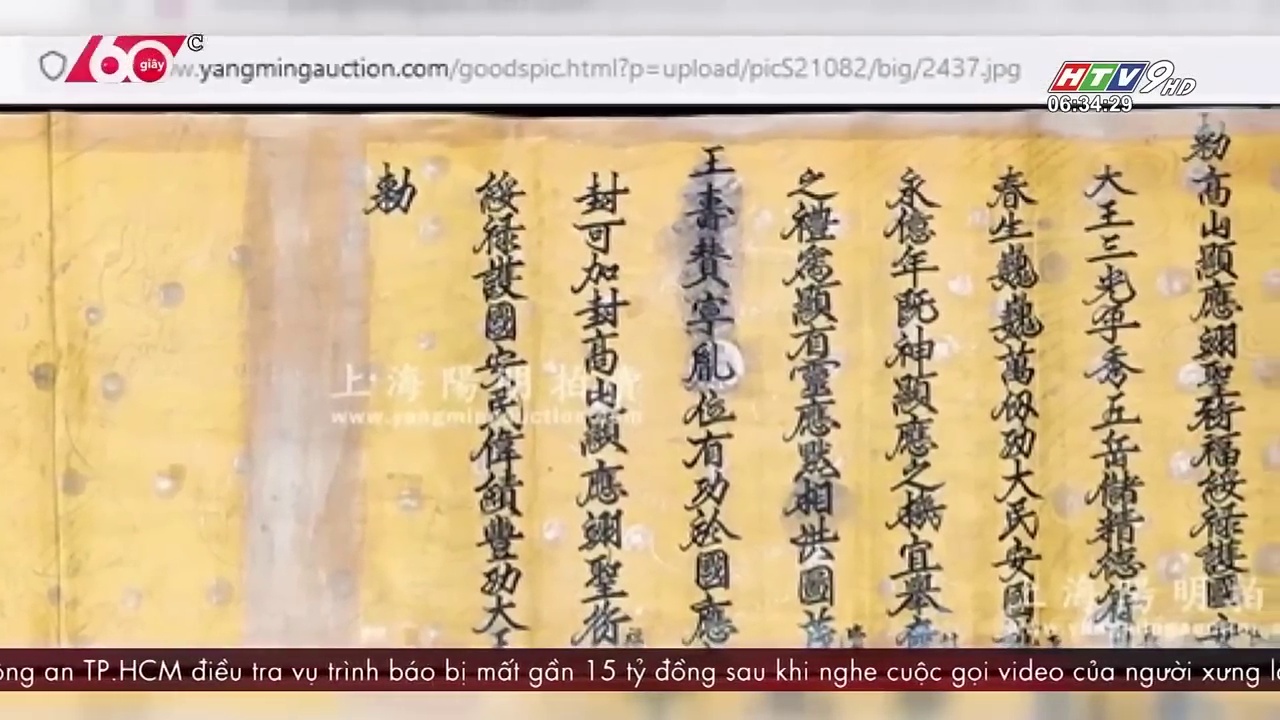 60 giây
C
w.yangmingauction.com/goodspic.html?p=upload/picS21082/big/2437.jpg
HTV9 HD
06:34:29
勑高山顯應翊聖衍福綏禄護國
大王三光孕秀五岳儲精德
春生巍巍萬仭功大民安國
永億年貺神顯應之換宜舉
之禮為顯有靈應默相洪圖
王壽贊寧胤位有功於國應
封可加封高山顯應翊聖衍
綏禄護國安民偉績豐功大
勑
上海陽明拍賣
www.yangmingauction.com
上海陽明拍
www.yangmingauction
ông an TP.HCM điều tra vụ trình báo bị mất gần 15 tỷ đồng sau khi nghe cuộc gọi video của người xưng l